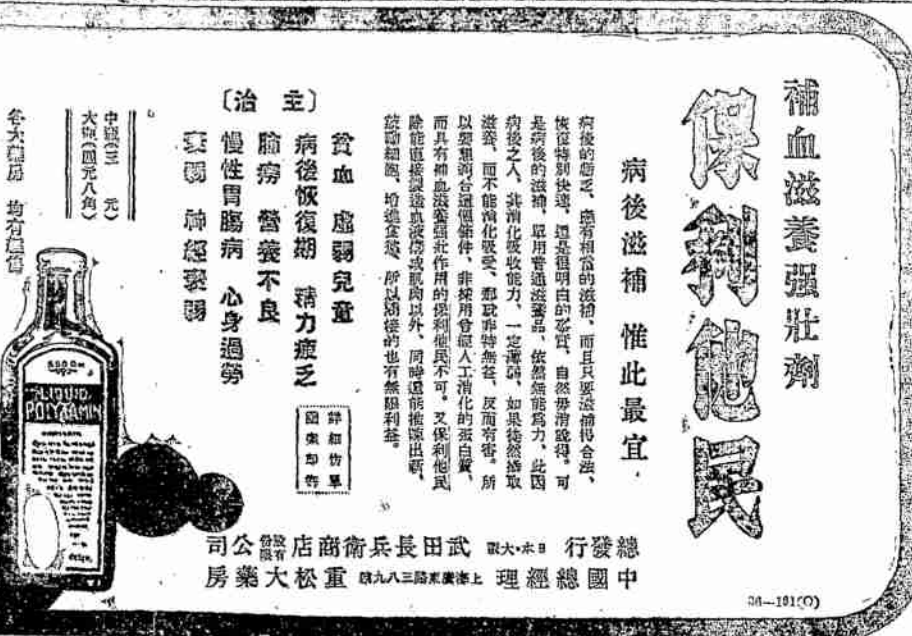 補血滋養强壯劑
保利他民
病後滋補 惟此最宜
病後的 應有相當的滋補、而且只要滋補得合法、
恢復特別快速、這是很明白的事實、自然毋清說得。可
是病後的滋補、單用普通滋養品、依然無能爲力、此因
病後之人、其消化吸收能力、一定薄弱、如果徒然攝取
滋養、而不能消化吸受、那 非特無益、反而有害。所
以要想調合這個條件、非採用曾經人工消化的蛋白質、
而具有補血滋養强壯作用的保利他民不可。又保利他民
除能直接製造血液 成肌肉以外、同時還能 陳出新、
細胞、增進食慾、所以間接的也有無限利益。
〔主治〕
貧血 虛弱兒童
病後恢復期 精力疲乏
肺癆 營養不良
慢性胃腸病 心身過勞
衰弱 神經衰弱
詳細仿單
函索卽寄
中瓶(三 元)
大瓶(四元八角)
各大藥房 均有經售
LIQUID
POLYTAMIN
總發行 日本・大阪 武田長兵衛商店股份有限公司
中國總經理 上海廣東路三八九號 重松大藥房
36—191(O)